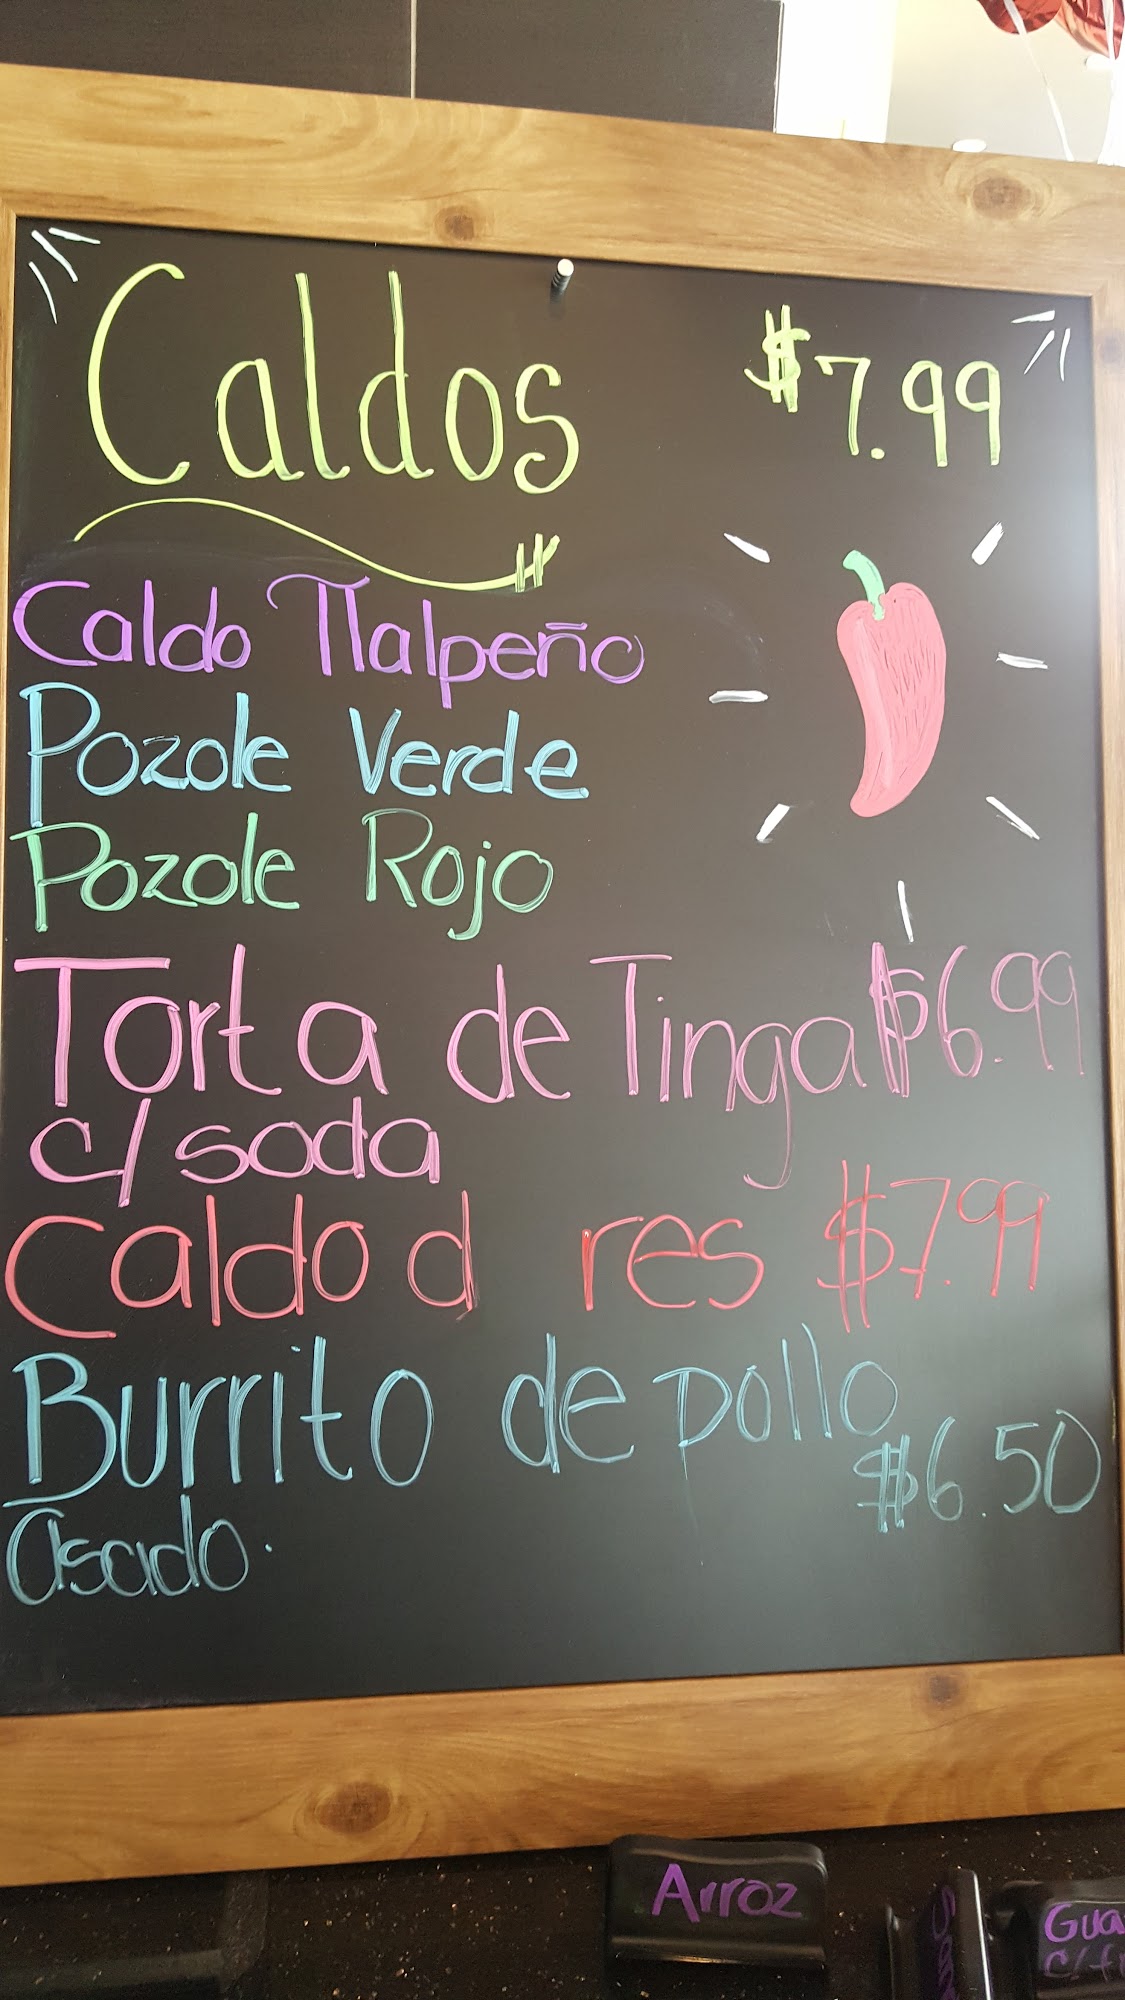 Caldos $7.99
Caldo Tlalpeño
Pozole Verde
Pozole Rojo
Torta de Tinga $6.99
c/ soda
Caldo d res $7.99
Burrito de pollo
$6.50
asado.
Arroz